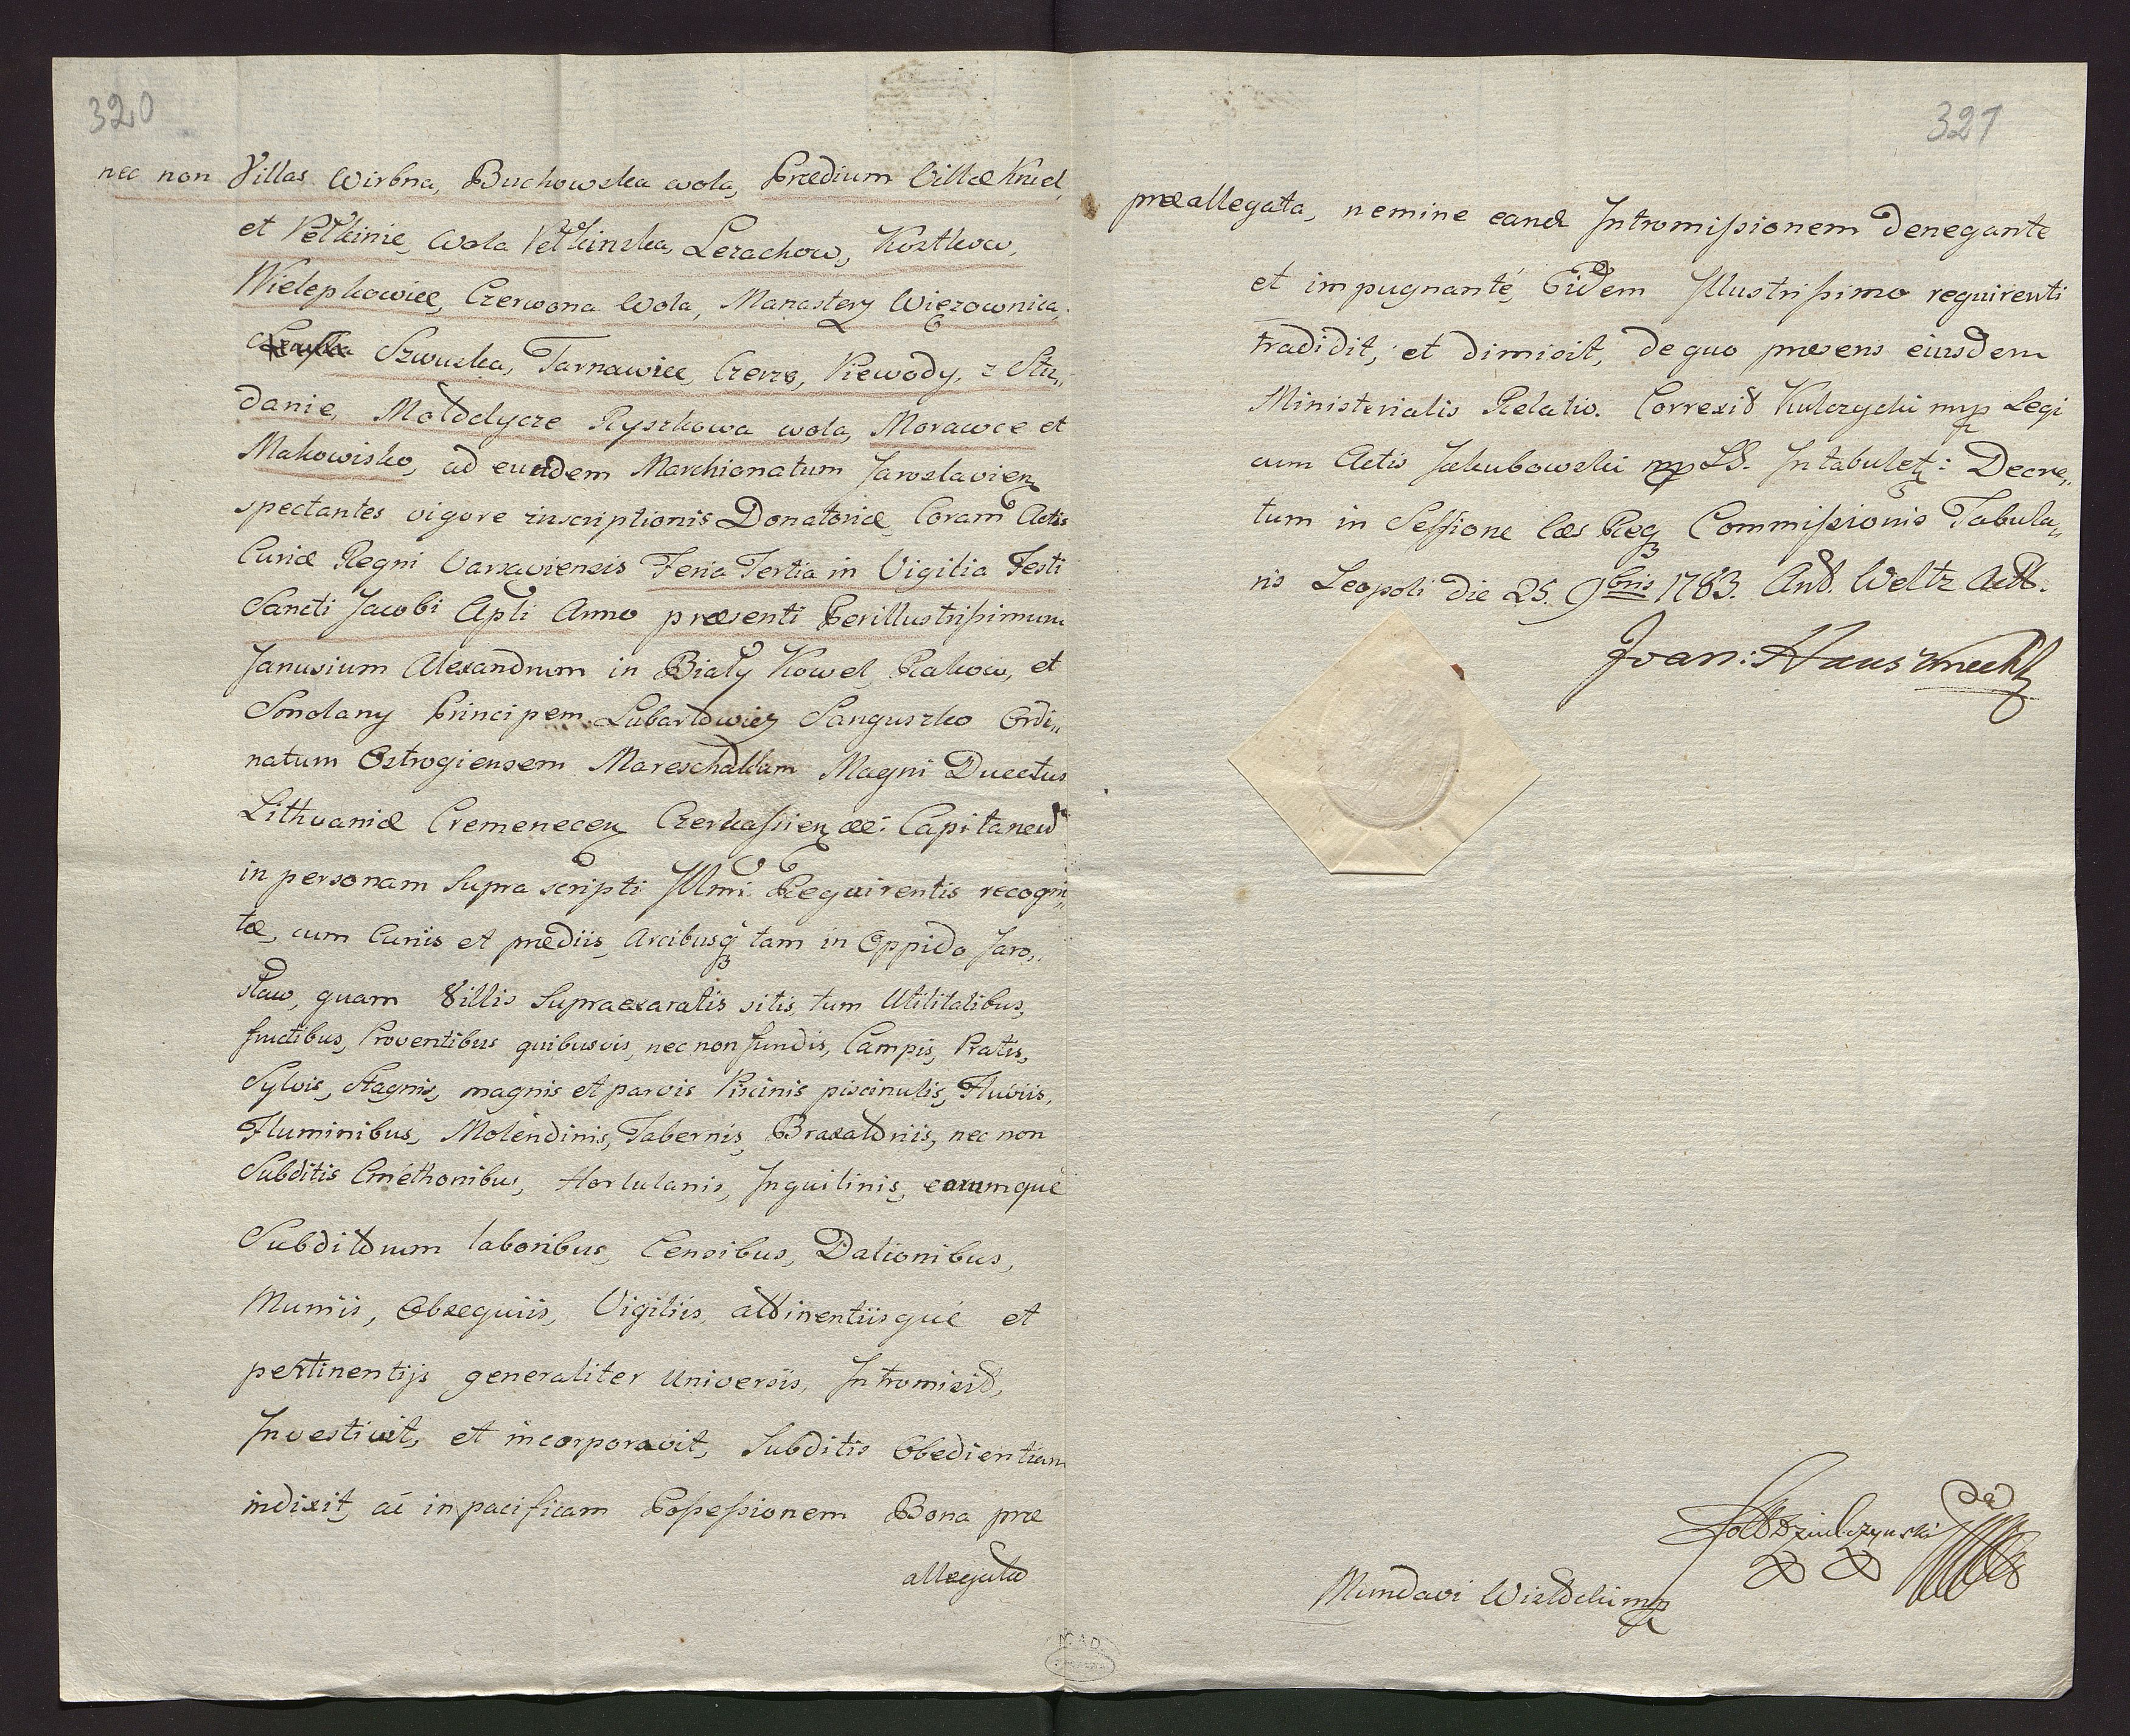 320
nec non Villas Wirbna, Buchowska wola, Prædium Villæ Kniel,
et Pełkinie, Wola Pełkinska, Lezachow, Kostkow,
Wielepkowice, Czerwona Wola, Manastery Więzownica,
Szwuska, Tarnawiec, Czerze, Piewody, z Stu„
danie, Mołdelycze Ryszkowa wola, Morawce et
Makowisko, ad eundem Marchionatum Jaroslavien
spectantes vigore inscriptionis Donatoriæ, Coram Actis
Curiæ Regni Varsaviensis Feria Tertia in Vigilia Festi
Sancti Jacobi Apli Anno præsenti Perillustrissimum
Janusium Alexandrum in Biały Kowel, Rakow, et
Smolany Principem Lubartowicz Sanguszko Ordi„
natum Ostrogiensem Mareschallum Magni Ducatus
Lithvaniæ Cremenecen Czerkassien &&: Capitaneu
in personam Supra scripti Illmi Requirentis recogni„
tæ, cum Curiis et prædiis, Arcibusq tam in Oppido Jaro„
staw, quam Villis Supraexaratis sitis, tum Utilitatibus,
fructibus, Proventibus quibusvis, nec non fundis, Campis, Pratis,
Sylvis, Stagnis, magnis et parvis Piscinis piscinulis, Fluviis,
Fluminibus, Molendinis, Tabernis, Braxatoriis, nec non
Subditis Cmethonibus, Hortulanis, Inquilinis, earumque
Subditorum laboribus, Censibus, Dationibus,
Muniis, Obsequiis, Vigiliis, attinentiisque et
pertinentijs generaliter Universis, Intromisit,
Investivit, et incorporavit, Subditis Obedientiam
indixit, ac in pacificam Possessionem Bona præ
allegata
321
præallegata, nemine eand Intromissionem denegante
et impugnante, Eidem Illustrissimo requirenti
tradidit, et dimisit, de quo præsens eiusdem
Ministerialis Relatio. Correxit Kulczycki mp Legi
cum Actis Jakubowski mp LS. Intabulet: Decre„
tum in Sessione Cæs Reg Commissionis Tabula„
ris Leopoli die 25. 9bris 1783. And. Weltz Act.
Joan: Hausknecht
Mundavi Wisłocki mp